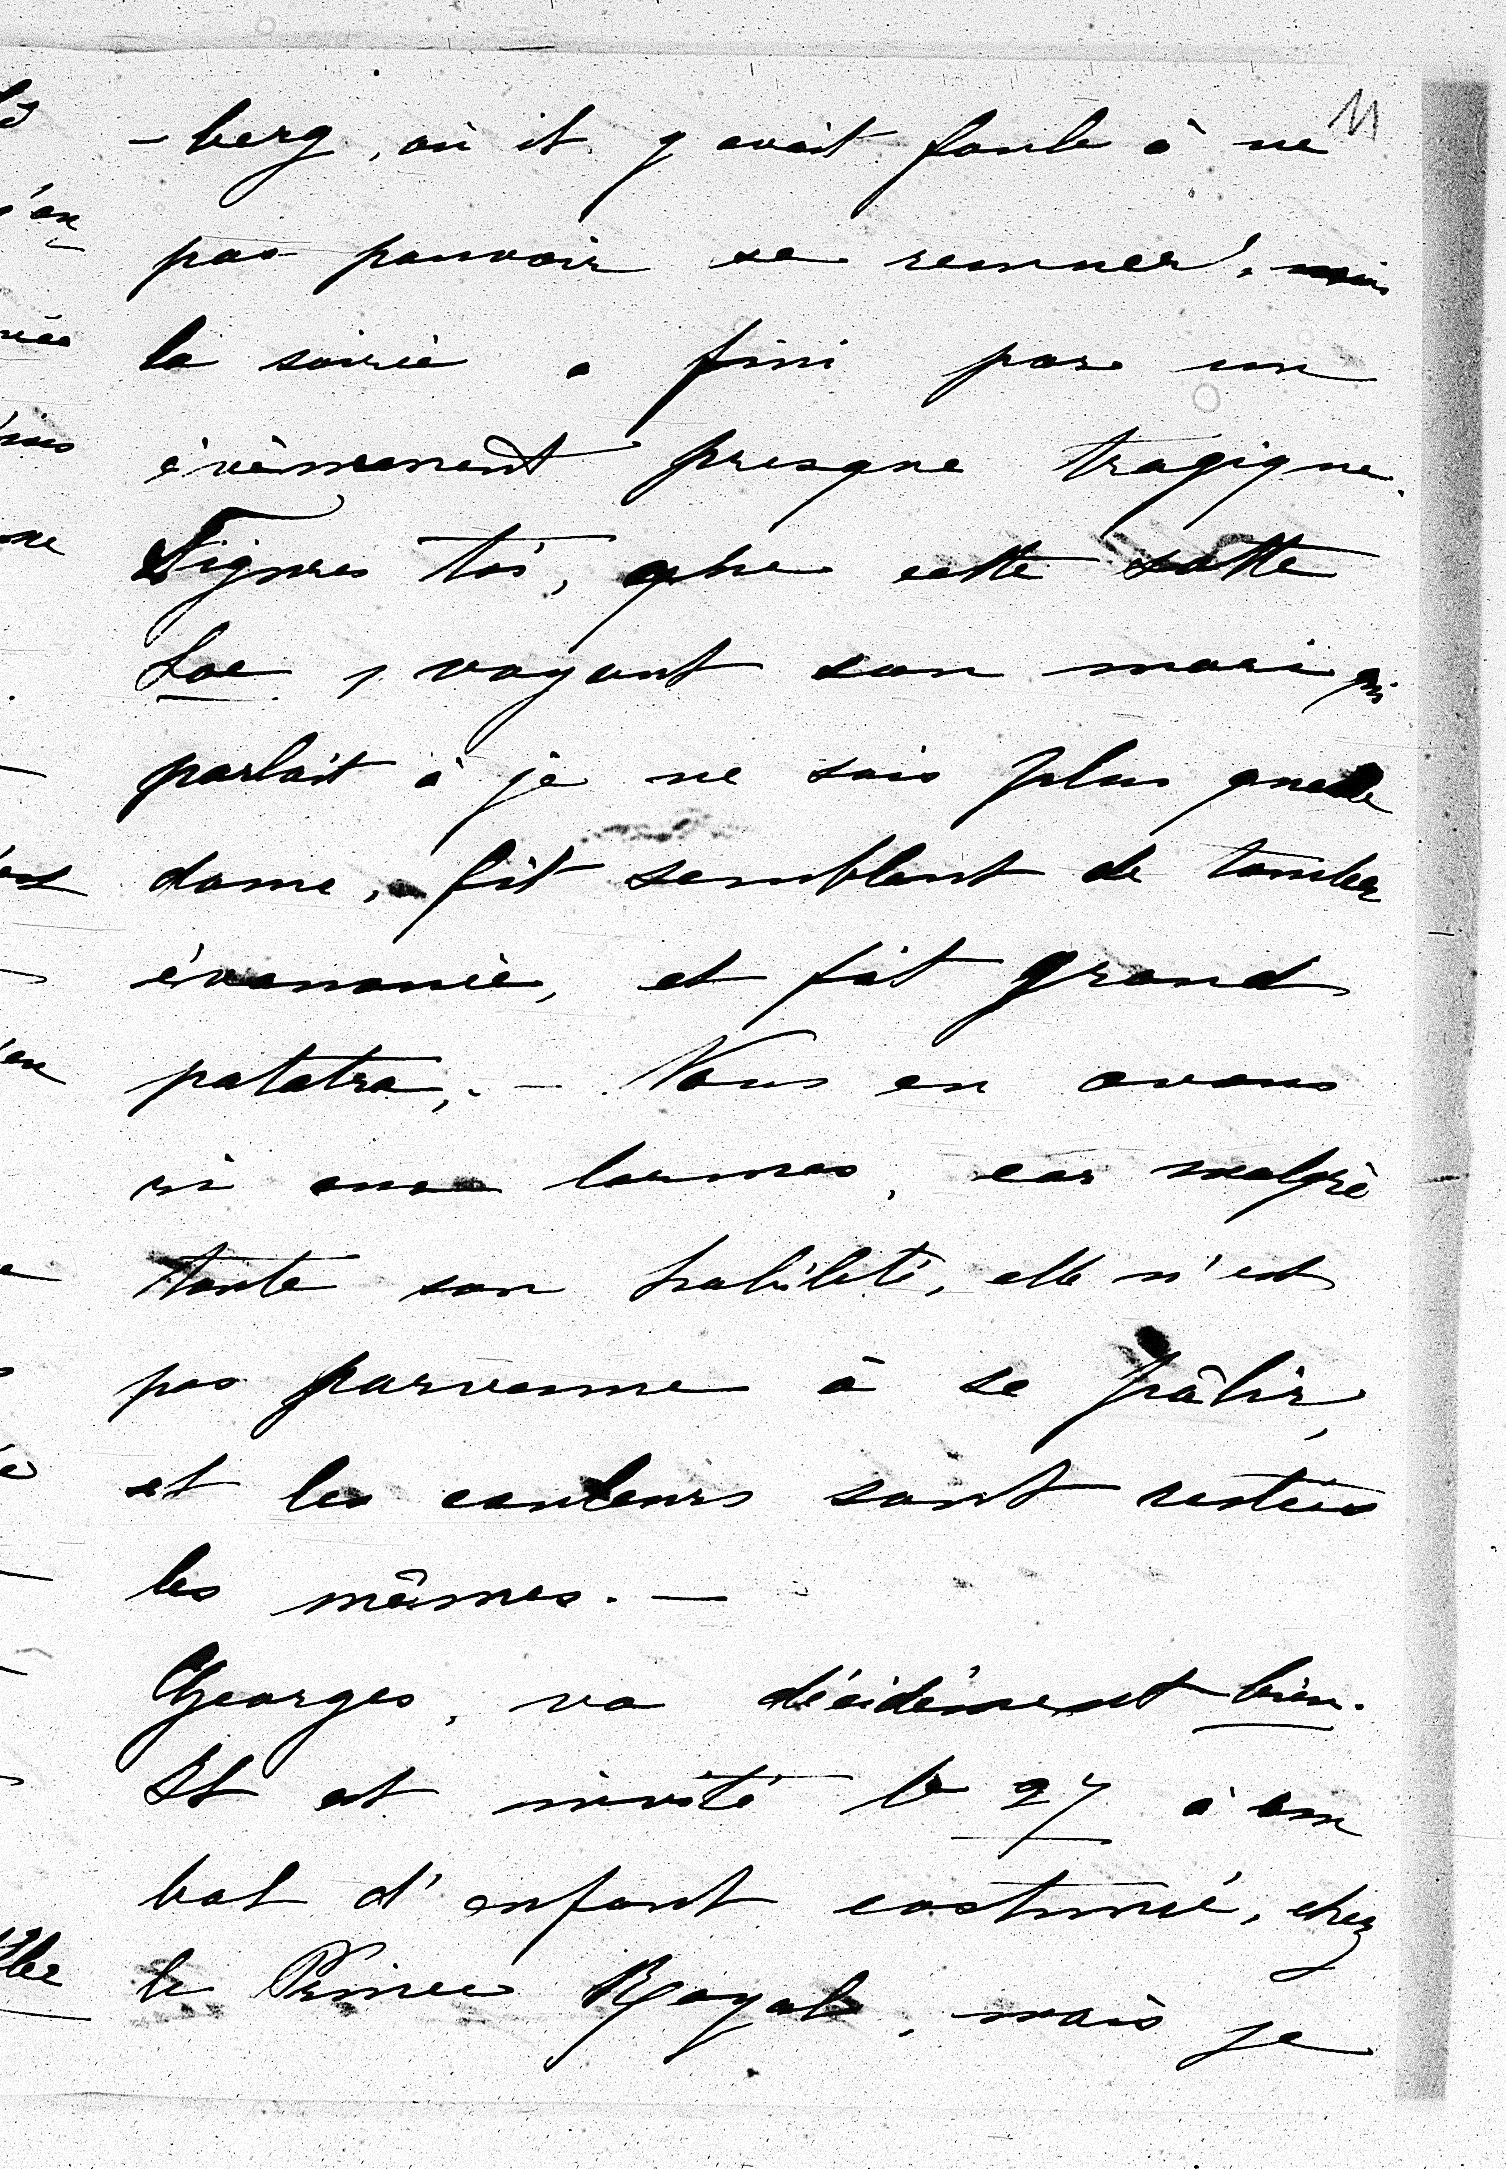 11
-berg, où il y avait foule à ne
pas pouvoir se remuer, mais
la soirée a fini par un
évènement presque tragique.
Figures toi, que cette sotte
Loe, voyant son mari qui
parlait à je ne sais plus quelle
dame, fit semblant de tomber
évanouie, et fit grand
patatra. – Nous en avons
ri aux larmes, car malgré
toute son habileté, elle n'est
pas parvenue à se pâlir,
et les couleurs sont restées
les mêmes. –
Georges, va décidément bien.
Il est invité le 27 à un
bal d'enfant costumé, chez
le Prince Royal, mais je